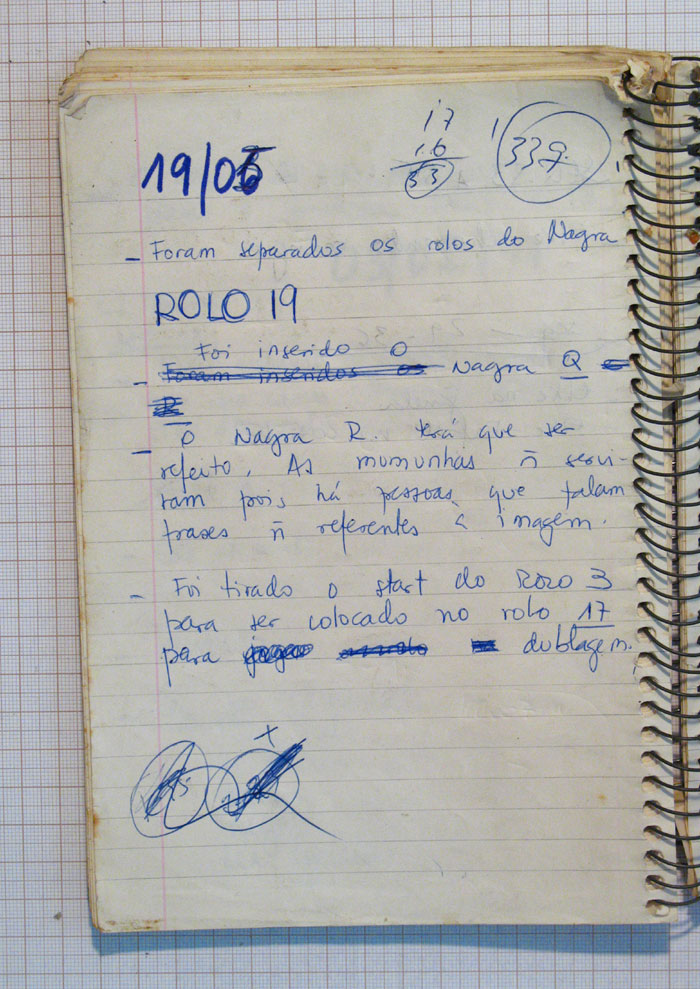 17
16
33
339
19/05
– Foram separados os rolos do Nagra
ROLO 19
Foi inserido o
– Foram inseridos os Nagra Q e
R
– O Nagra R. terá que ser
refeito. As mumunhas ñ servi-
ram pois há pessoas que falam
frases ñ referentes à imagem.
– Foi tirado o start do Rolo 3
para ser colocado no rolo 17
para dublagem.